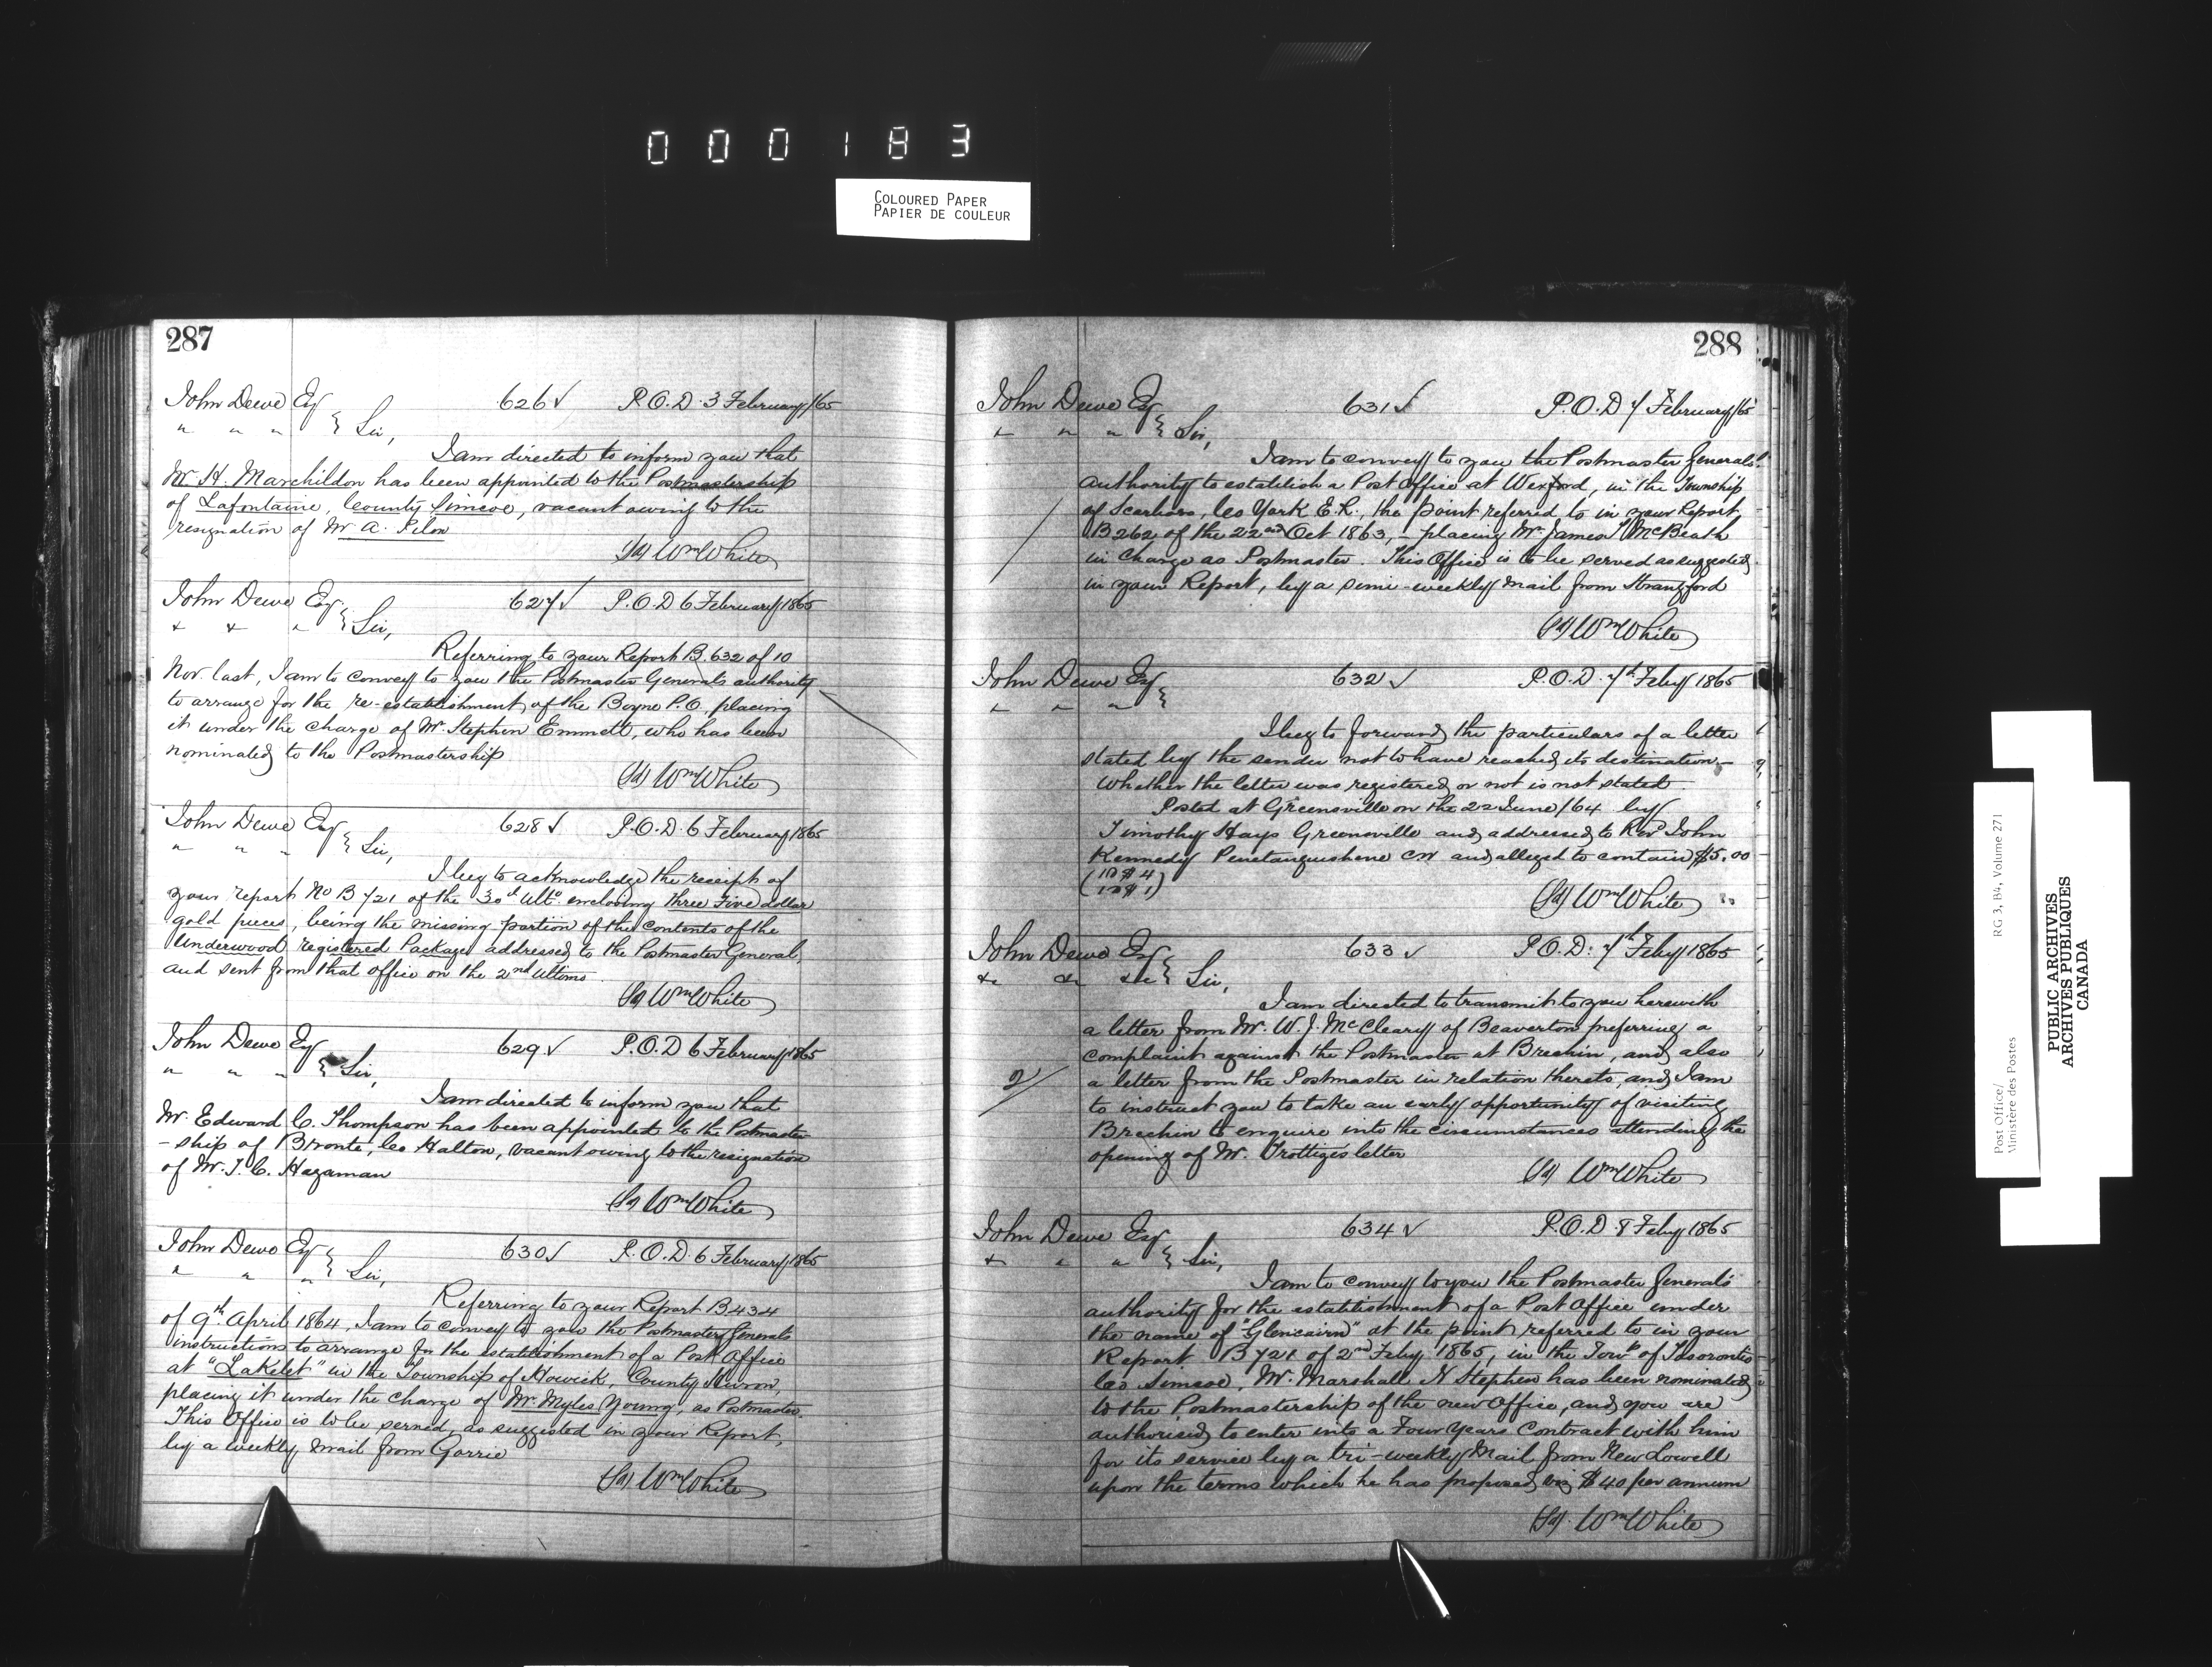 000183
COLOURED PAPER
PAPIER DE COULEUR
287
John Dewe Esq 626 ✓ P.O.D. 3 February /65
" " " } Sir,
I am directed to inform you that
Mr H. Marchildon has been appointed to the Postmastership
of Lafontaine, County Simcoe, vacant owing to the
resignation of Mr A. Pilon
(Sd) Wm White
John Dewe Esq 627 ✓ P.O.D 6 February 1865
" " " } Sir,
Referring to your Report B.632 of 10
Nov. last, I am to convey to you the Postmaster General's authority
to arrange for the re-establishment of the Boyne P.O. placing
it under the charge of Mr. Stephen Emmett, who has been
nominated to the Postmastership
(Sd) Wm White
John Dewe Esq 628 ✓ P.O.D. 6 February 1865
" " " } Sir,
I beg to acknowledge the receipt of
your report No B 721 of the 30th Ulto. enclosing three Five dollar
gold pieces, being the missing portion of the contents of the
Underwood registered Package addressed to the Postmaster General,
and sent from that office on the 2nd Ultimo.
(Sd) Wm White
John Dewe Esq 629 ✓ P.O.D 6 February 1865
" " " } Sir,
I am directed to inform you that
Mr. Edward C. Thompson has been appointed to the Postmaster
-ship of Bronte, Co Halton, vacant owing to the resignation
of Mr. T. C. Hagaman
(Sd) Wm White
John Dewe Esq 630 ✓ P.O.D. 6 February 1865
" " " } Sir,
Referring to your Report B434
of 9th April 1864, I am to convey to you the Postmaster Generals
instructions to arrange for the establishment of a Post Office
at "Lakelet" in the Township of Howick, County Huron,
placing it under the charge of Mr. Myles Young, as Postmaster.
This Office is to be served, as suggested in your Report,
by a weekly mail from Gorrie
(Sd) Wm White
288
John Dewe Esq 631 ✓ P.O.D 7 February /65
" " " } Sir,
I am to convey to you the Postmaster General's
authority to establish a Post Office at Wexford, in the Township
of Scarboro, Co York E.R., the point referred to in your Report
B262 of the 22nd Oct 1863, - placing Mr. James T McBeath
in charge as Postmaster. This Office is to be served as suggested
in your Report, by a semi-weekly mail from Strangford
(Sd) Wm White
John Dewe Esq 632 ✓ P.O.D. 7th Feby 1865
" " " }
I beg to forward the particulars of a letter
stated by the sender not to have reached its destination -
Whether the letter was registered or not is not stated.
Posted at Greensville on the 22 June /64 by
Timothy Hays Greensville and addressed to Revd John
Kennedy Penetanguishene CW and alleged to contain $5.00
(1 @ $4)
(1 @ $1)
(Sd) Wm White
John Dewe Esq 633 ✓ P.O.D. 7th Feby 1865
&c &c &c } Sir,
I am directed to transmit to you herewith
a letter from Mr. W. J. McCleary of Beaverton preferring a
complaint against the Postmaster at Brechin, and also
2/ a letter from the Postmaster in relation thereto, and I am
to instruct you to take an early opportunity of visiting
Brechin to enquire into the circumstances attending the
opening of Mr. Trottiges letter
(Sd) Wm White
John Dewe Esq 634 ✓ P.O.D. 8 Feby 1865
" " " } Sir,
I am to convey to you the Postmaster General's
authority for the establishment of a Post Office under
the name of "Glencairn" at the point referred to in your
Report B721 of 2nd Feby 1865, in the Towp of Tosorontio
Co Simcoe, Mr. Marshall N Stephens has been nominated
to the Postmastership of the new Office, and you are
authorised to enter into a Four Years Contract with him
for its service by a tri-weekly Mail from New Lowell
upon the terms which he has proposed, viz $40 per annum
(Sd). Wm White
Post Office/
Ministère des Postes
RG 3, B4, Volume 271
PUBLIC ARCHIVES
ARCHIVES PUBLIQUES
CANADA